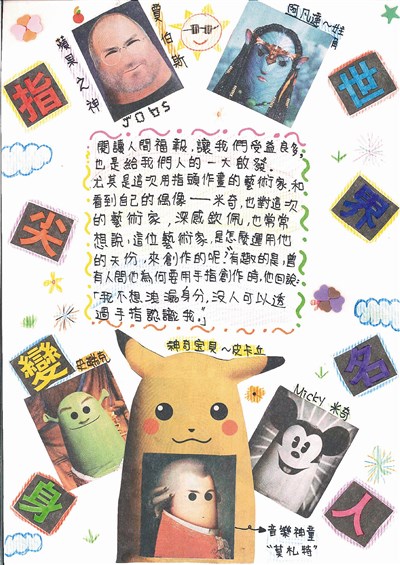 指尖變身
世界名人
蘋果之神
賈伯斯
Jobs
阿凡達~娃
閱讀人間福報,讓我們受益良多,
也是給我們人的一大啟發。
尤其是這次用指頭作畫的藝術家,和
看到自己的偶像──米奇,也對這次
的藝術家,深感欽佩,也常常
想說,這位藝術家,是怎麼運用他
的天份,來創作的呢?有趣的是,曾
有人問他為何要用手指創作時,他回說:
「我不想洩漏身分,沒人可以透
過手指認識我。」
神奇宝貝~皮卡丘
史瑞克
Micky 米奇
音樂神童
"莫札特"